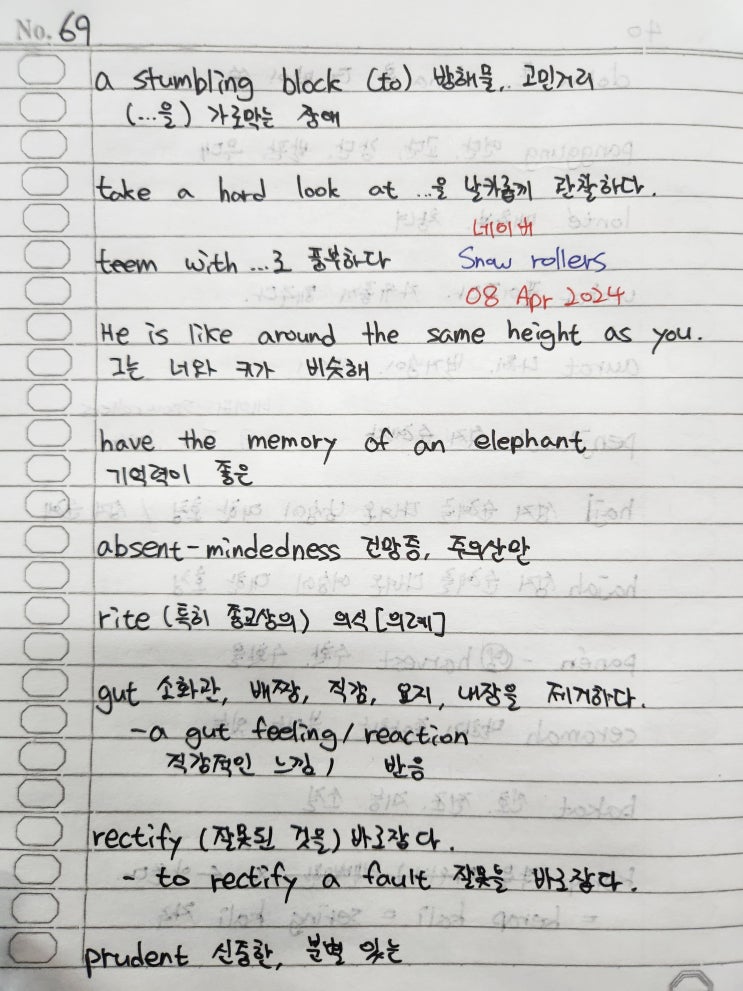 No. 69
a stumbling block (to) 방해물, 고민거리
(...을) 가로막는 장애
take a hard look at ...을 날카롭게 관찰하다.
네이버
teem with ...로 풍부하다 Snow rollers
08 Apr 2024
He is like around the same height as you.
그는 너와 키가 비슷해
have the memory of an elephant
기억력이 좋은
absent-mindedness 건망증, 주의산만
rite (특히 종교상의) 의식[의례]
gut 소화관, 배짱, 직감, 요지, 내장을 제거하다.
-a gut feeling/reaction
직감적인 느낌 / 반응
rectify (잘못된 것을) 바로잡다.
- to rectify a fault 잘못을 바로잡다.
prudent 신중한, 분별 있는